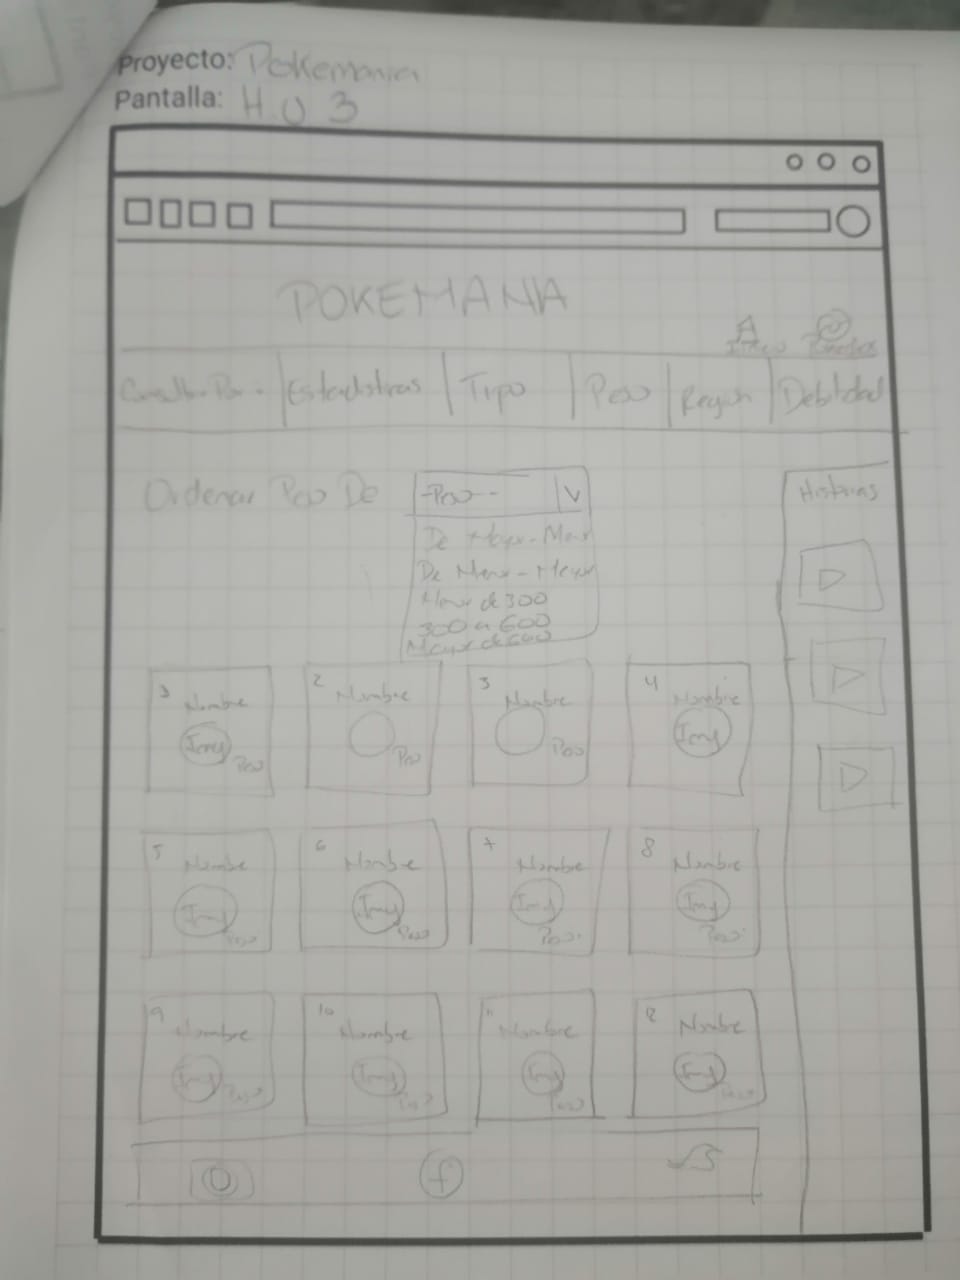 Proyecto: Pokemania
Pantalla: H.U 3
POKEMANIA
Inicio Pokedex
Consultar Por: Estadisticas Tipo Peso Region Debilidad
Ordenar Peso De -Peso-- V
Historias
De Mayor-Menor
De Menor-Mayor
Menor de 300
300 a 600
Mayor de 600
1 Nombre Img Peso
2 Nombre Peso
3 Nombre Peso
4 Nombre Img
5 Nombre Img Peso
6 Nombre Img Peso
7 Nombre Img Peso
8 Nombre Img Peso
9 Nombre Img Peso
10 Nombre Img Peso
11 Nombre Img Peso
12 Nombre Img Peso
f